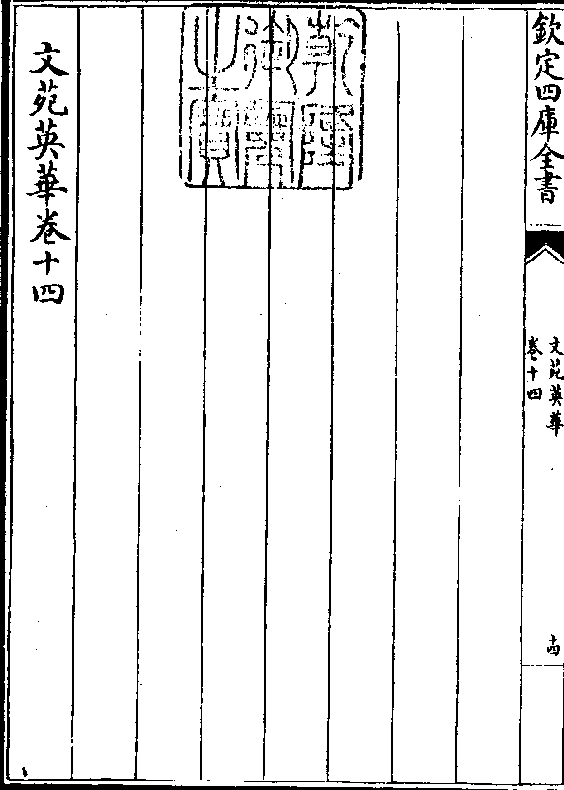 欽定四庫全書
文苑英華
卷十四
十四
乾隆御覽之寶
文苑英華卷十四